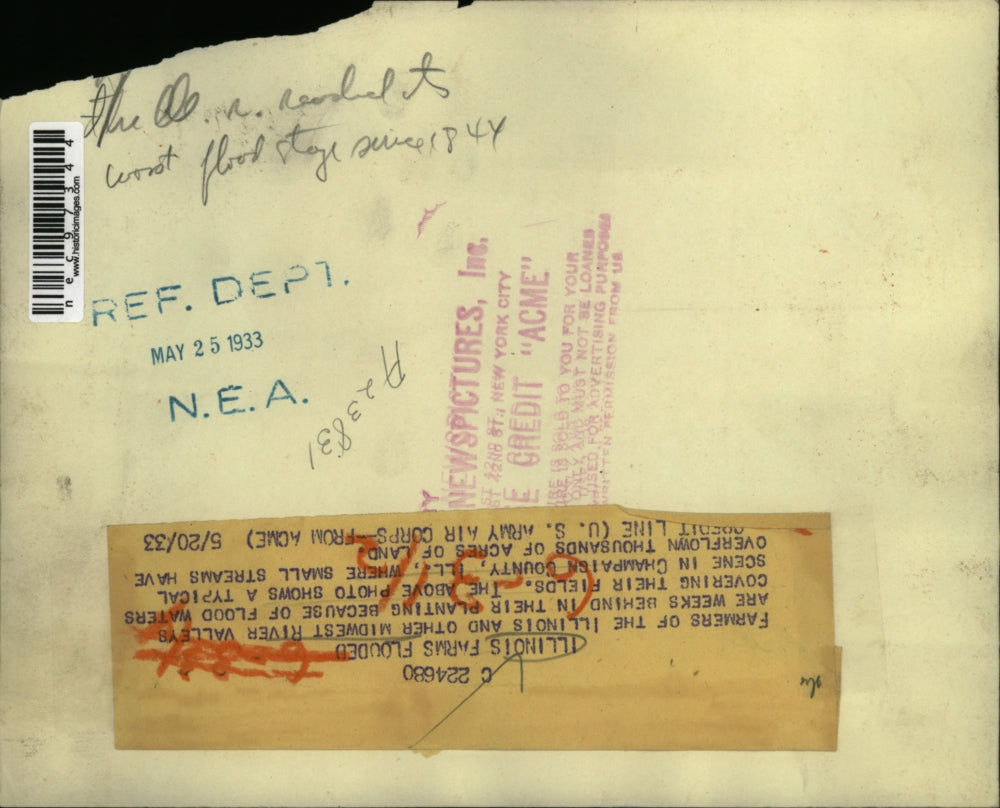 the Ill. r. reached its
worst flood stage since 1844
nec97344
www.historicimages.com
REF. DEPT.
MAY 25 1933
N.E.A.
NEWSPICTURES, Inc.
42ND ST., NEW YORK CITY
CREDIT "ACME"
IS SOLD TO YOU FOR YOUR
ONLY AND MUST NOT BE LOANED
USED FOR ADVERTISING PURPOSES
PERMISSION FROM US
C 224680
ILLINOIS FARMS FLOODED
FARMERS OF THE ILLINOIS AND OTHER MIDWEST RIVER VALLEYS
ARE WEEKS BEHIND IN THEIR PLANTING BECAUSE OF FLOOD WATERS
COVERING THEIR FIELDS. THE ABOVE PHOTO SHOWS A TYPICAL
SCENE IN CHAMPAIGN COUNTY, ILL., WHERE SMALL STREAMS HAVE
OVERFLOWN THOUSANDS OF ACRES OF LAND
CREDIT LINE (U. S. ARMY AIR CORPS-FROM ACME) 5/20/33